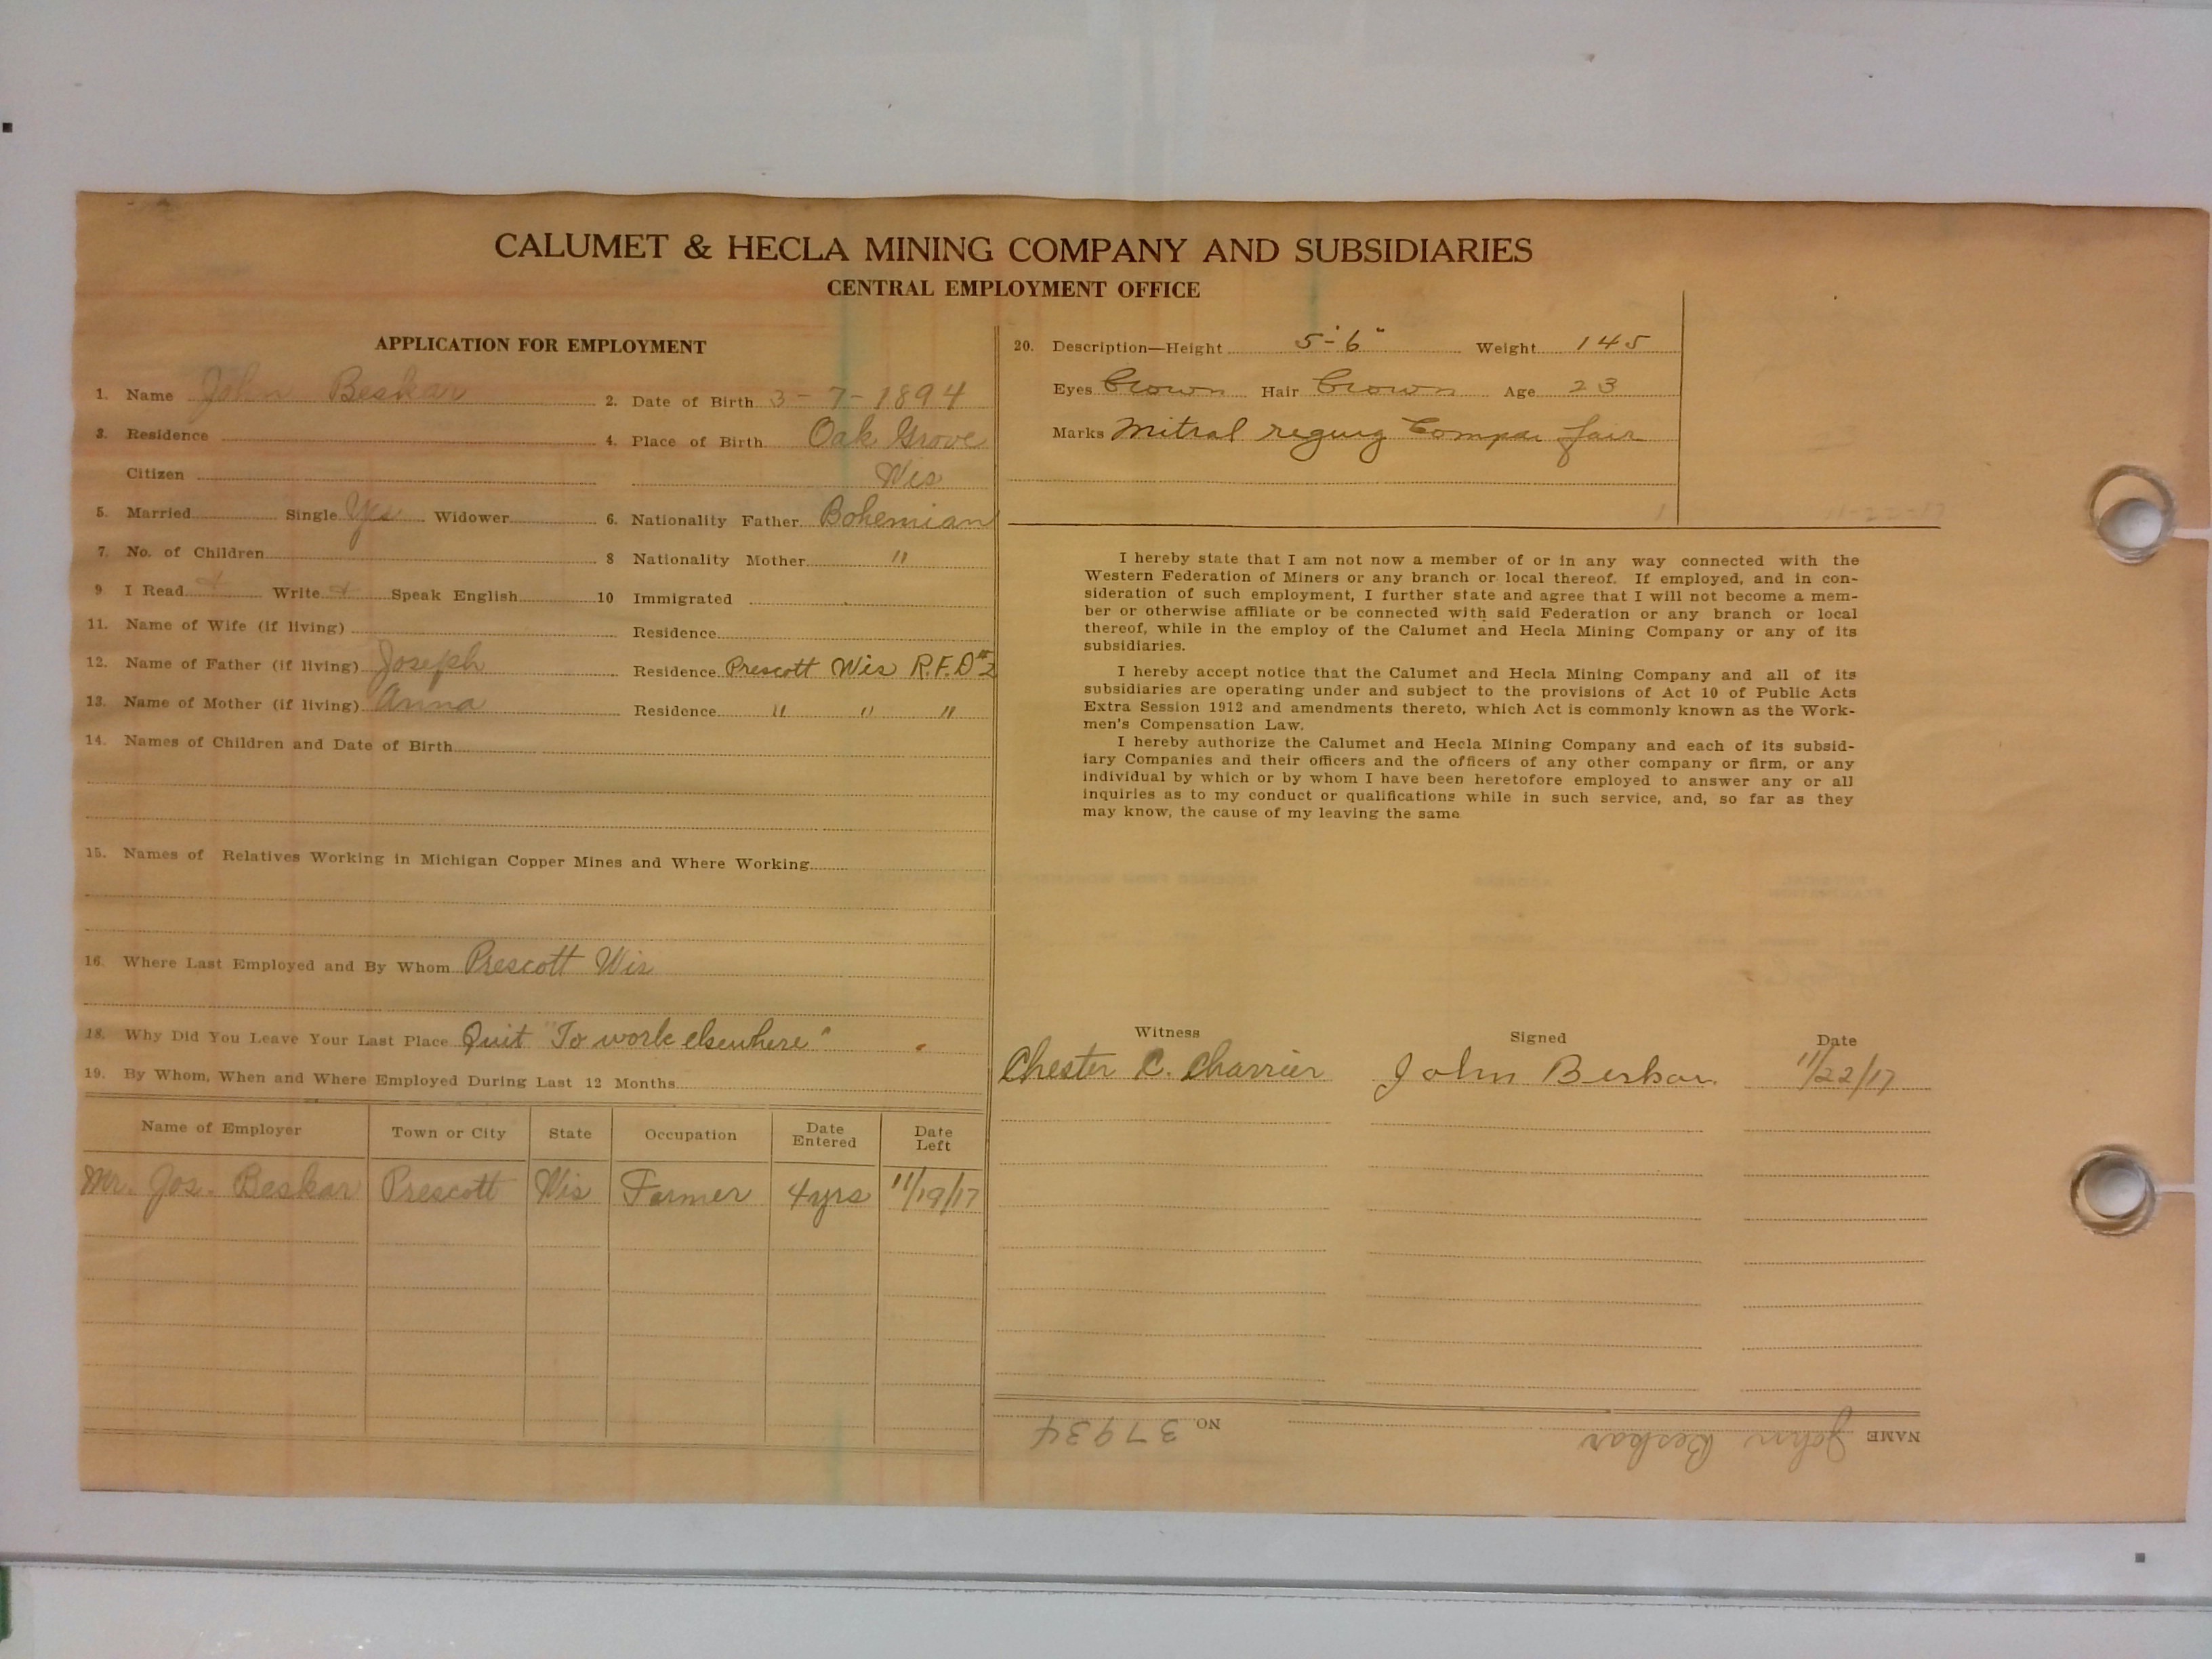 CALUMET & HECLA MINING COMPANY AND SUBSIDIARIES
CENTRAL EMPLOYMENT OFFICE
APPLICATION FOR EMPLOYMENT
1. Name John Beskar 2. Date of Birth 3-7-1894
3. Residence 4. Place of Birth Oak Grove
Citizen Wis
5. Married Single Yes Widower 6. Nationality Father Bohemian
7. No. of Children 8 Nationality Mother "
9 I Read Write Speak English 10 Immigrated
11. Name of Wife (if living) Residence
12. Name of Father (if living) Joseph Residence Prescott Wis R.F.D #2
13. Name of Mother (if living) Anna Residence " " "
14. Names of Children and Date of Birth
15. Names of Relatives Working in Michigan Copper Mines and Where Working
16. Where Last Employed and By Whom Prescott Wis
18. Why Did You Leave Your Last Place Quit "To work elsewhere"
19. By Whom, When and Where Employed During Last 12 Months
Name of Employer Town or City State Occupation Date Entered Date Left
Mr. Jos. Beskar Prescott Wis Farmer 4 yrs 11/19/17
20. Description—Height 5'-6" Weight 145
Eyes Brown Hair Brown Age 23
Marks Mitral regurg Compen fair
11-22-17
I hereby state that I am not now a member of or in any way connected with the
Western Federation of Miners or any branch or local thereof. If employed, and in con-
sideration of such employment, I further state and agree that I will not become a mem-
ber or otherwise affiliate or be connected with said Federation or any branch or local
thereof, while in the employ of the Calumet and Hecla Mining Company or any of its
subsidiaries.
I hereby accept notice that the Calumet and Hecla Mining Company and all of its
subsidiaries are operating under and subject to the provisions of Act 10 of Public Acts
Extra Session 1912 and amendments thereto, which Act is commonly known as the Work-
men's Compensation Law.
I hereby authorize the Calumet and Hecla Mining Company and each of its subsid-
iary Companies and their officers and the officers of any other company or firm, or any
individual by which or by whom I have been heretofore employed to answer any or all
inquiries as to my conduct or qualifications while in such service, and, so far as they
may know, the cause of my leaving the same
Witness Signed Date
Chester C. Charrier John Beskar 11/22/17
NAME John Beskar NO 37934